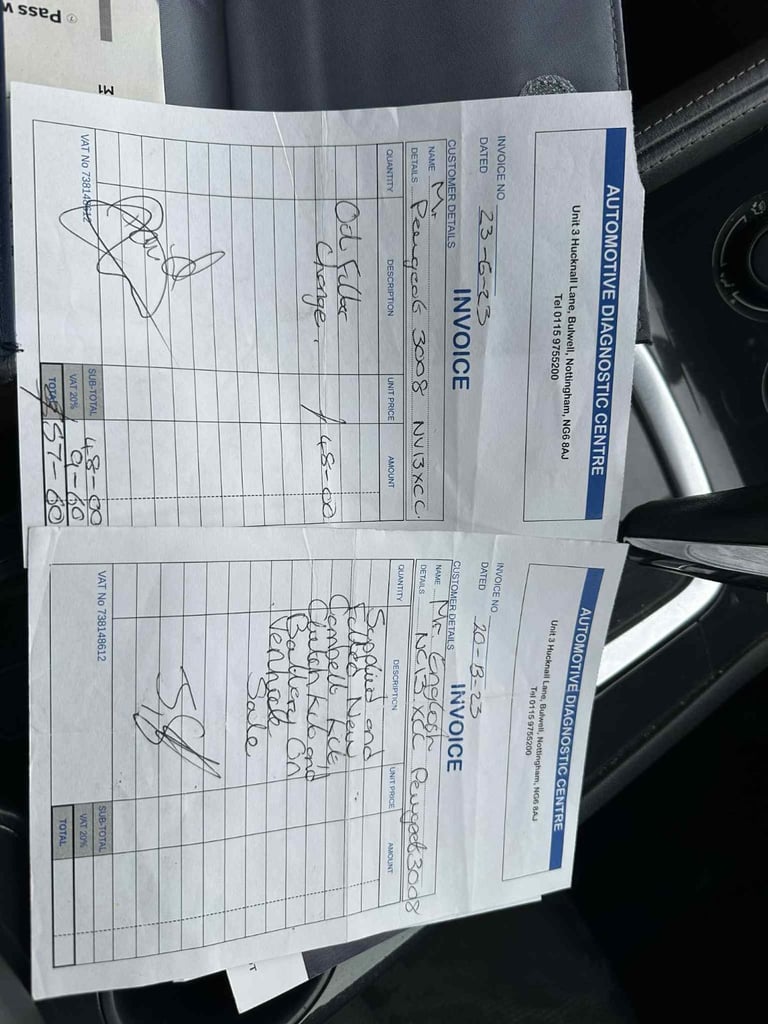 Pass w
M1
AUTOMOTIVE DIAGNOSTIC CENTRE
Unit 3 Hucknall Lane, Bulwell, Nottingham, NG6 8AJ
Tel 0115 9755200
INVOICE NO
INVOICE
DATED 23-6-23
CUSTOMER DETAILS
NAME Mr
DETAILS Peugeot 3008 NV13XCC
QUANTITY DESCRIPTION UNIT PRICE AMOUNT
Oil Filter
Change. 48-00
SUB-TOTAL 48-00
VAT 20% 9-60
VAT No 738148612 TOTAL 57-60
AUTOMOTIVE DIAGNOSTIC CENTRE
Unit 3 Hucknall Lane, Bulwell, Nottingham, NG6 8AJ
Tel 0115 9755200
INVOICE NO
INVOICE
DATED 20-
CUSTOMER DETAILS
NAME Mr English
DETAILS XCC Peugeot 3008
QUANTITY DESCRIPTION UNIT PRICE AMOUNT
Supplied and
Fitted New
Cambelt Kit,
Clutch Kit and
Battery On
Vehicle
Sale
SUB-TOTAL
VAT 20%
VAT No 738148612 TOTAL